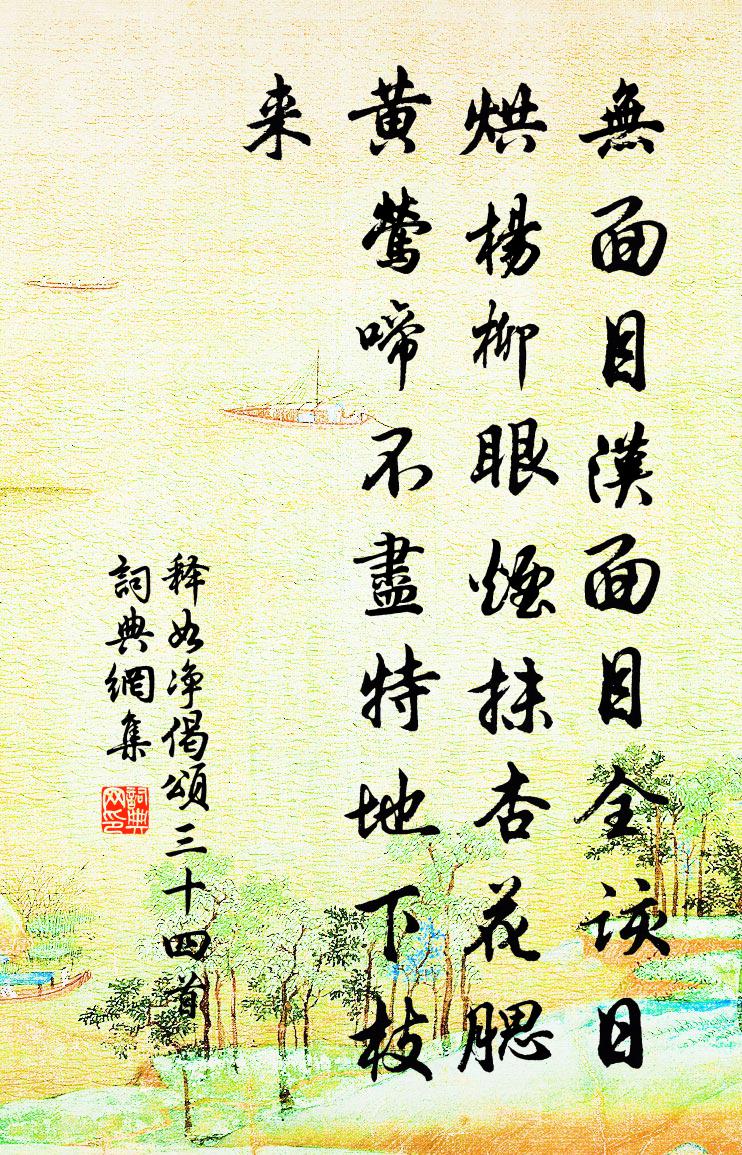 無面目漢面目全該日
烘楊柳眼煙抹杏花腮
黄鶯啼不盡特地下枝
来
释如净偈頌三十四首
詞典網集
詞典网印